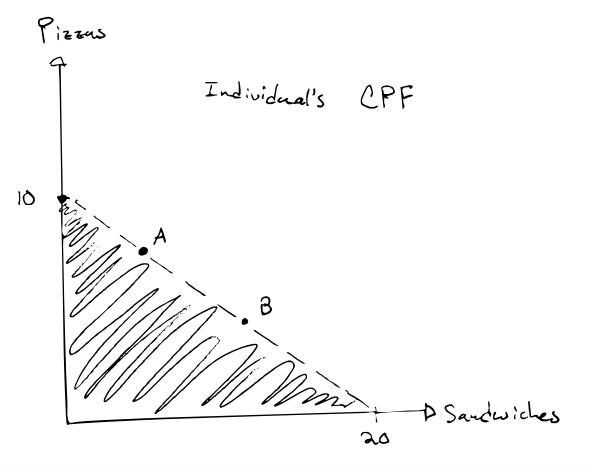 Pizzas
Individual's CPF
10
A
B
Sandwiches
20